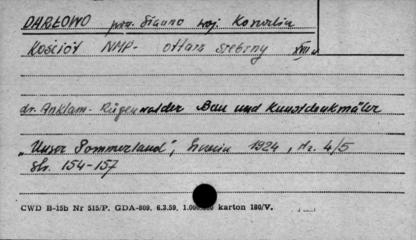 DARŁOWO pow. Sławno woj. Koszalin
Kościół NMP - ołtarz srebrny XVII w
dr. Anklam - Rügenwalder Bau und Kunstdenkmäler
"Unser Pommerland", 1924, H. 4/5
Str. 154-157
CWD B-15b Nr 515/P. GDA-809. 6.3.59. karton 180/V.